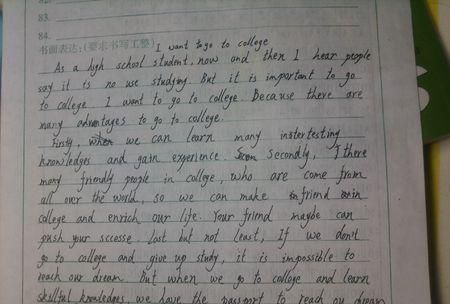 83.
84.
书面表达:(要求书写工整) I want to go to college
As a high school student, now and then I hear people
say it is no use studying. But it is important to go
to college I want to go to college. Because there are
many advantages to go to college.
Firstly, we can learn many intertesting
knowledges and gain experience. Secondly, there
many friendly people in college, who are come from
all over the world, so we can make friend in
college and enrich our life. Your friend maybe can
push your sccesse. Last but not least, If we don't
go to college and give up study, it is impossible to
reach our dream. But when we go to college and learn
skillful knowledges, we have the passport to reach our dream